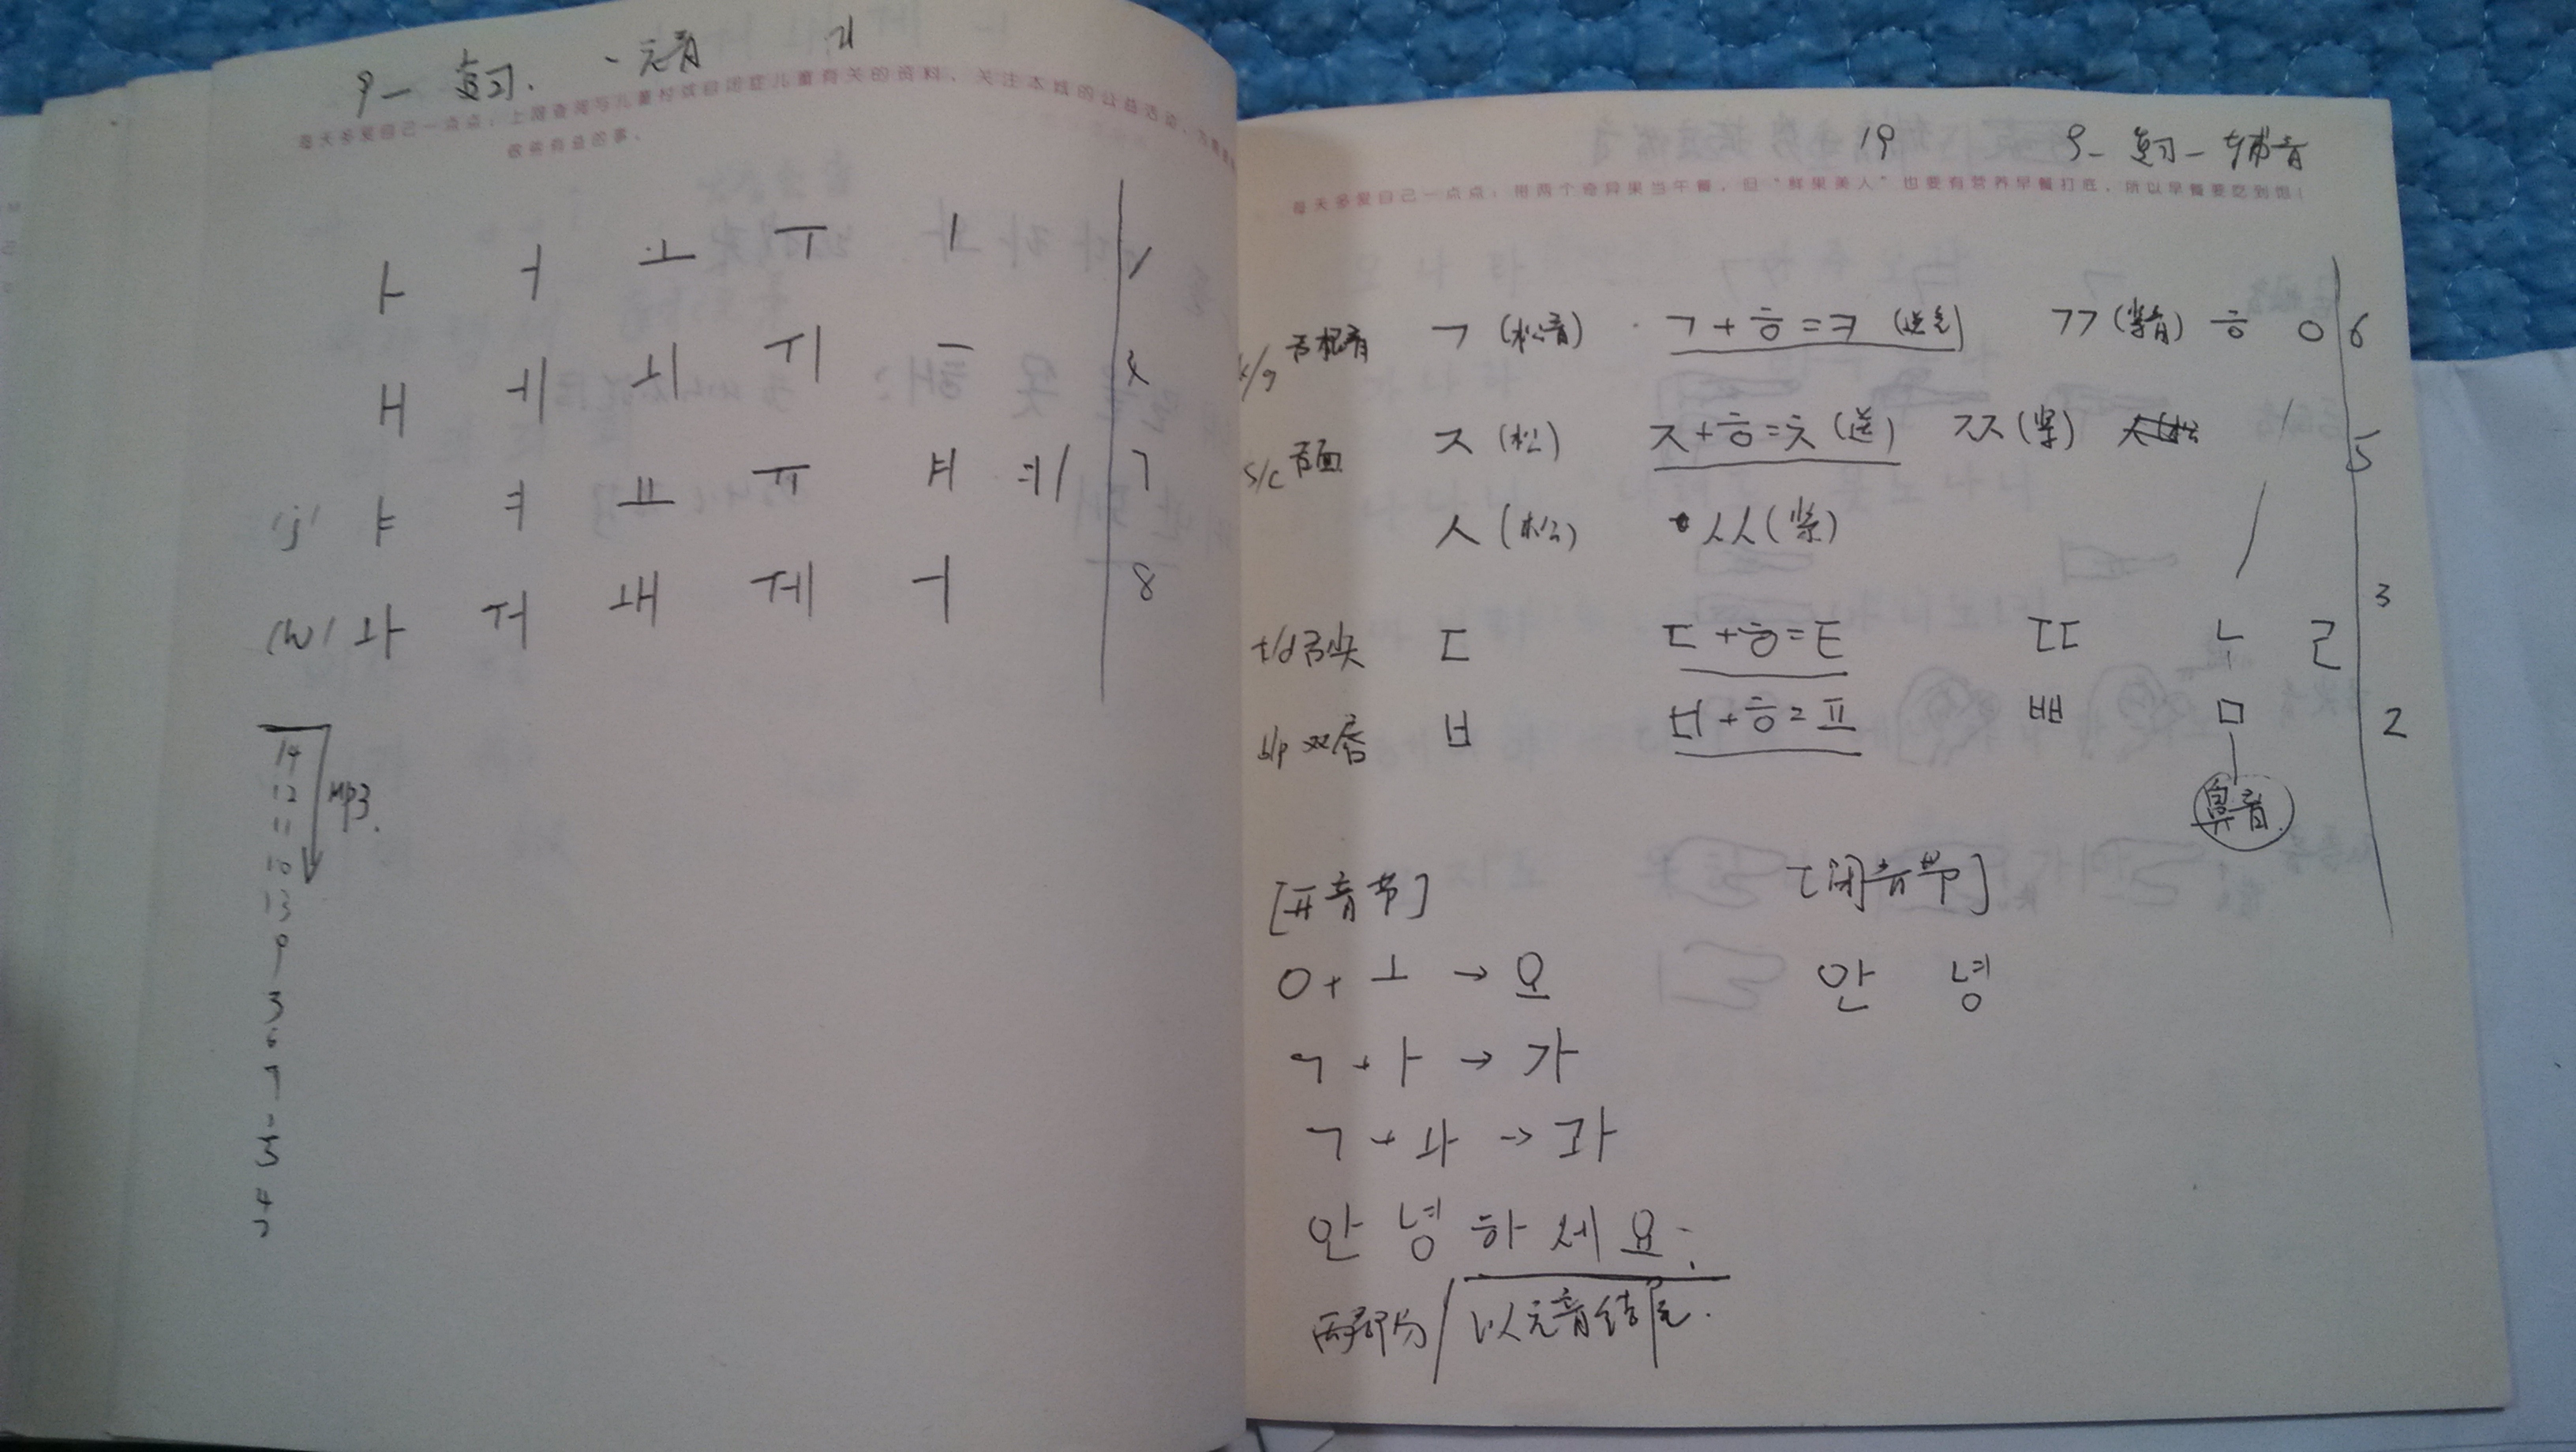 9— 复习. 、元音 21
每天多爱自己一点点：上网查阅与儿童村或自闭症儿童有关的资料，关注本城的公益活动，
做些有益的事。
ㅏ ㅓ ㅗ ㅜ ㅣ 1
ㅐ ㅔ ㅚ ㅟ ㅡ 4
/j/ ㅑ ㅕ ㅛ ㅠ ㅒ ㅖ / 7
/w/ ㅘ ㅝ ㅙ ㅞ ㅢ 8
14
12 MP3.
11
10
13
9
3
6
7
5
4
19 9— 复习—辅音
每天多爱自己一点点：带两个奇异果当午餐，但“鲜果美人”也要有营养早餐打底，所以早餐要吃到饱！
k/g 舌根音 ㄱ (松音) ㄱ+ㅎ=ㅋ (送气) ㄲ (紧音) ㅎ ㅇ 6
s/c 舌面 ㅈ (松) ㅈ+ㅎ=ㅊ (送) ㅉ (紧) 5
ㅅ (松) ㅆ (紧)
3
t/d 舌尖 ㄷ ㄷ+ㅎ=ㅌ ㄸ ㄴ ㄹ
b/p 双唇 ㅂ ㅂ+ㅎ=ㅍ ㅃ ㅁ 2
鼻音
[开音节] [闭音节]
ㅇ+ㅗ → 오 안 녕
ㄱ+ㅏ → 가
ㄱ+ㅘ → 과
안 녕 하 세 요.
两部分/以元音结尾.